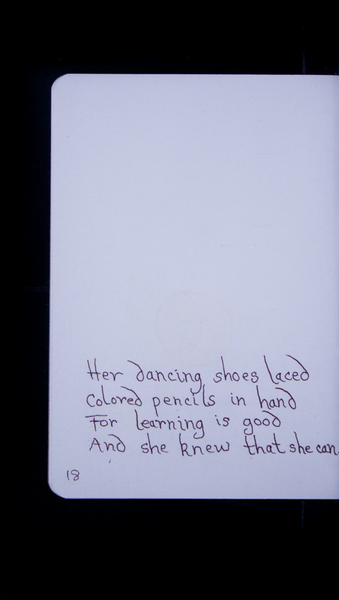 Her dancing shoes laced
Colored pencils in hand
For learning is good
And she knew that she can.
18